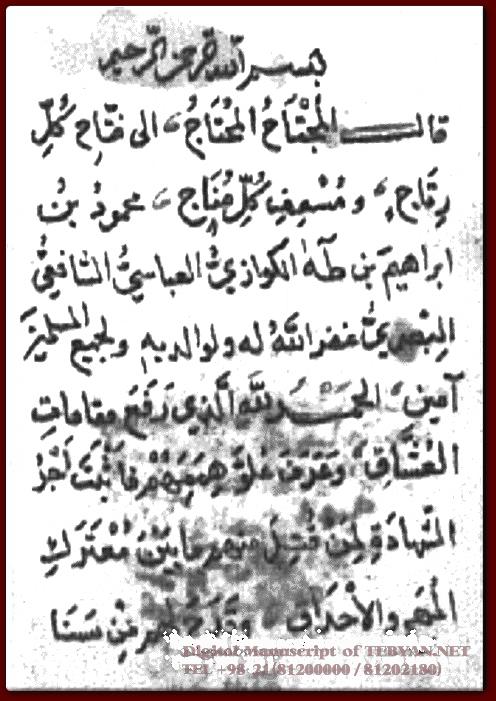 بسم الله الرحمن الرحيم
قال المجتاح المحتاج الى فتاح كلّ
رتاج، ومسعف كلّ محتاج، محمود بن
ابراهيم بن طه الكوازيّ العباسيّ الشافعيّ
البصريّ غفر الله له ولوالديه ولجميع المسلمين
آمين، الحمد لله الّذي رَفَعَ مقامات
العُشَّاق، وَعَرَفَ عُلوَّ هِمَمِهم فأثبت أجْرَ
الشّهادة لِمَنْ قُتِلَ منهم ما بَيْن مُعْتَرَكِ
المُهَجِ والأحْدَاق، وقَدَحَ لهم مِنْ سَنَا
Digital Manuscript of TEBYAN.NET
TEL +98 21(81200000 / 81202180)